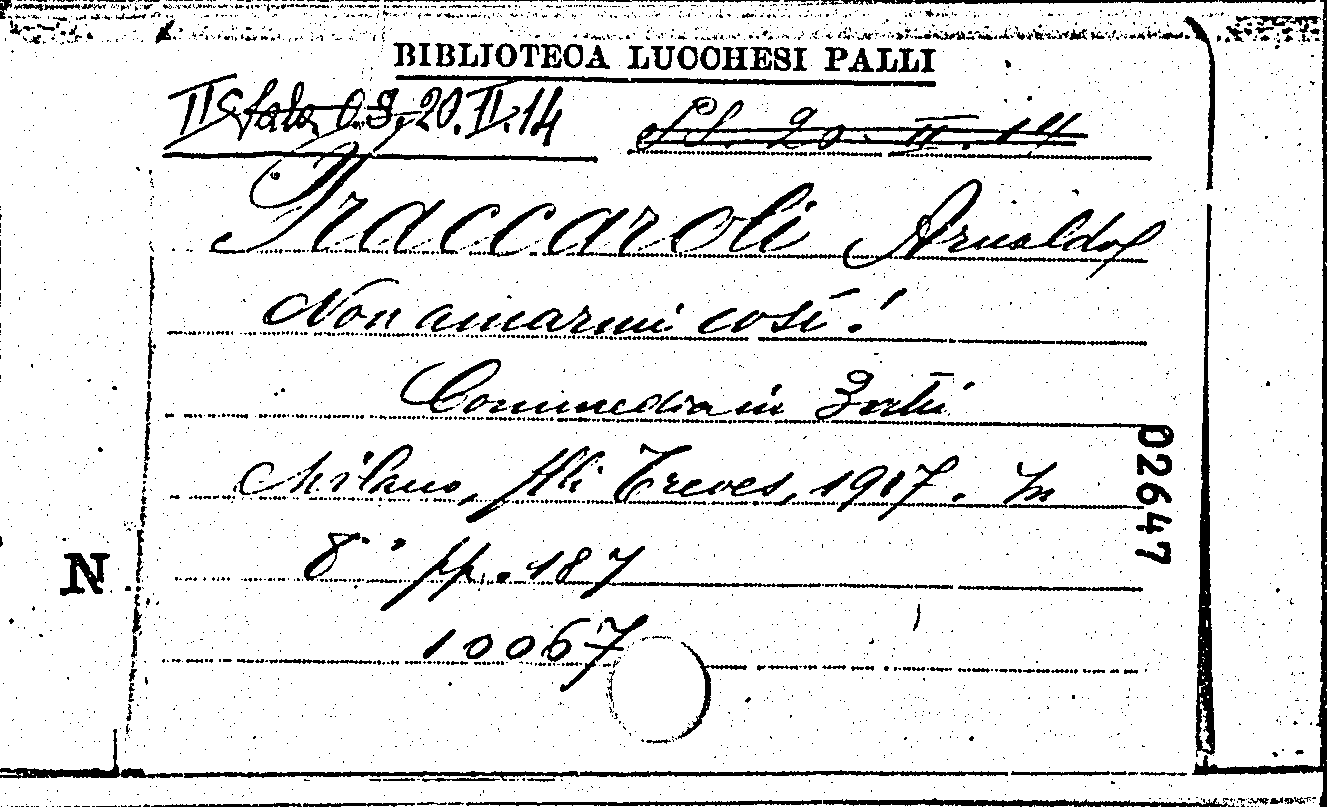 BIBLIOTECA LUCCHESI PALLI
II Sala 20.II.14
SS. 20. II. 14
Fraccaroli Arnaldo
Non amarmi così!
Commedia in 3 atti
Milano, flli Treves, 1917. In
8° pp. 187
10067
N
02647